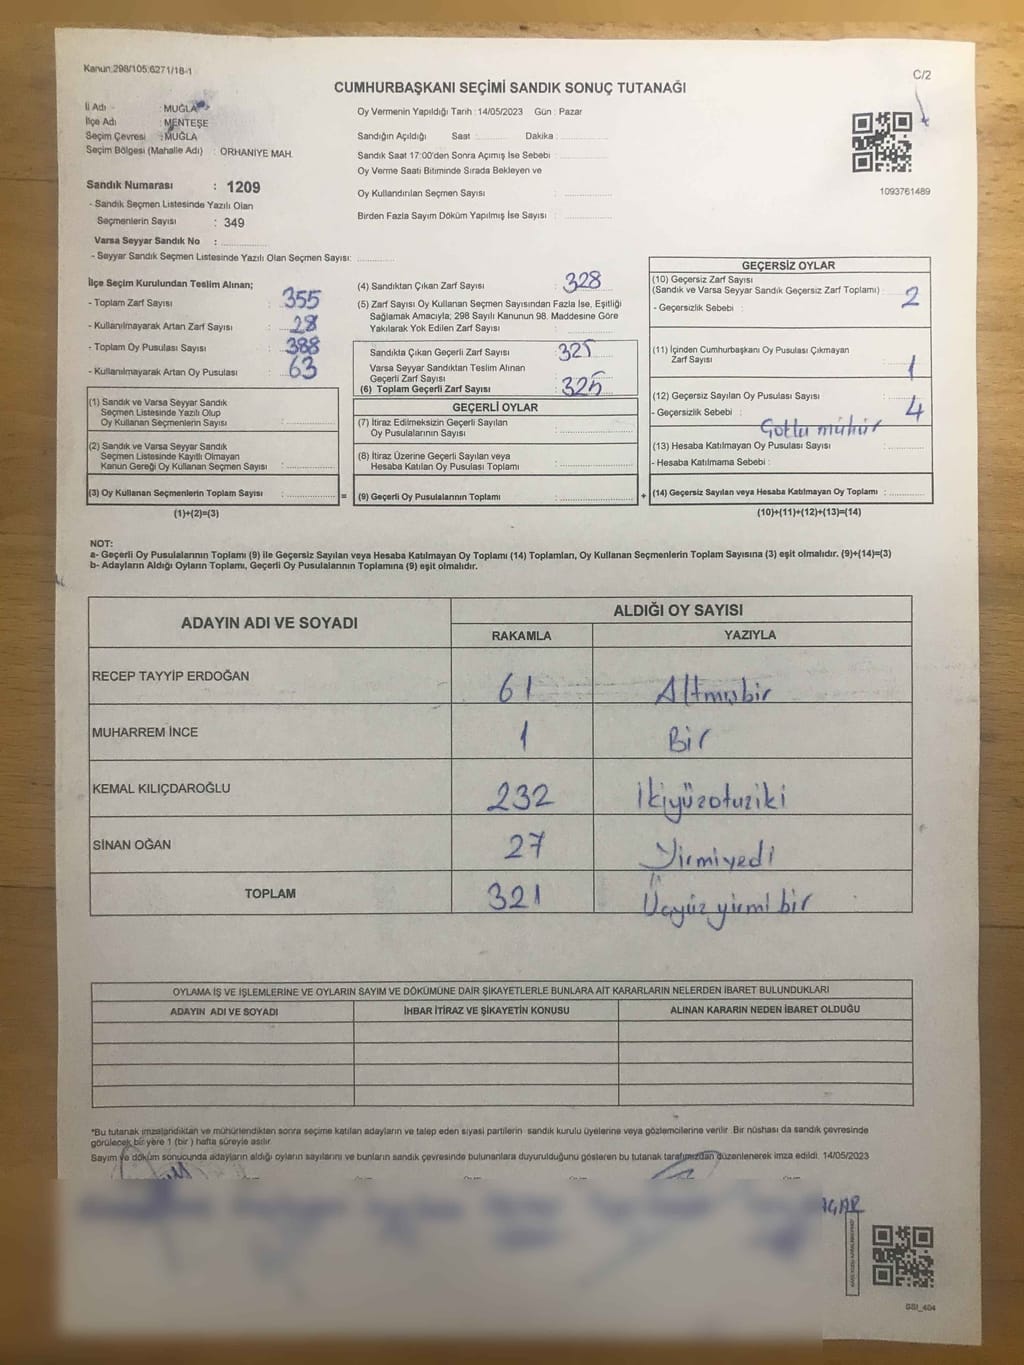 Kanun:298/105:6271/18-1
C/2
CUMHURBAŞKANI SEÇİMİ SANDIK SONUÇ TUTANAĞI
İl Adı : MUĞLA
İlçe Adı : MENTEŞE
Seçim Çevresi : MUĞLA
Seçim Bölgesi (Mahalle Adı) : ORHANİYE MAH.
Oy Vermenin Yapıldığı Tarih : 14/05/2023 Gün : Pazar
Sandığın Açıldığı Saat : Dakika :
Sandık Saat 17:00'den Sonra Açımış İse Sebebi :
Oy Verme Saati Bitiminde Sırada Bekleyen ve
Oy Kullandırılan Seçmen Sayısı :
Birden Fazla Sayım Döküm Yapılmış İse Sayısı :
1093761489
Sandık Numarası : 1209
- Sandık Seçmen Listesinde Yazılı Olan
Seçmenlerin Sayısı : 349
Varsa Seyyar Sandık No :
- Seyyar Sandık Seçmen Listesinde Yazılı Olan Seçmen Sayısı:
İlçe Seçim Kurulundan Teslim Alınan;
- Toplam Zarf Sayısı : 355
- Kullanılmayarak Artan Zarf Sayısı : 28
- Toplam Oy Pusulası Sayısı : 388
- Kullanılmayarak Artan Oy Pusulası : 63
(1) Sandık ve Varsa Seyyar Sandık
Seçmen Listesinde Yazılı Olup
Oy Kullanan Seçmenlerin Sayısı :
(2) Sandık ve Varsa Seyyar Sandık
Seçmen Listesinde Kayıtlı Olmayan
Kanun Gereği Oy Kullanan Seçmen Sayısı :
(3) Oy Kullanan Seçmenlerin Toplam Sayısı :
(1)+(2)=(3)
(4) Sandıktan Çıkan Zarf Sayısı : 328
(5) Zarf Sayısı Oy Kullanan Seçmen Sayısından Fazla İse, Eşitliği
Sağlamak Amacıyla; 298 Sayılı Kanunun 98. Maddesine Göre
Yakılarak Yok Edilen Zarf Sayısı :
Sandıkta Çıkan Geçerli Zarf Sayısı : 325
Varsa Seyyar Sandıktan Teslim Alınan
Geçerli Zarf Sayısı :
(6) Toplam Geçerli Zarf Sayısı : 325
GEÇERLİ OYLAR
(7) İtiraz Edilmeksizin Geçerli Sayılan
Oy Pusulalarının Sayısı :
(8) İtiraz Üzerine Geçerli Sayılan veya
Hesaba Katılan Oy Pusulası Toplamı :
= (9) Geçerli Oy Pusulalarının Toplamı :
GEÇERSİZ OYLAR
(10) Geçersiz Zarf Sayısı
(Sandık ve Varsa Seyyar Sandık Geçersiz Zarf Toplamı) : 2
- Geçersizlik Sebebi :
(11) İçinden Cumhurbaşkanı Oy Pusulası Çıkmayan
Zarf Sayısı : 1
(12) Geçersiz Sayılan Oy Pusulası Sayısı : 4
- Geçersizlik Sebebi :
mühür
(13) Hesaba Katılmayan Oy Pusulası Sayısı :
- Hesaba Katılmama Sebebi :
+ (14) Geçersiz Sayılan veya Hesaba Katılmayan Oy Toplamı :
(10)+(11)+(12)+(13)=(14)
NOT:
a- Geçerli Oy Pusulalarının Toplamı (9) ile Geçersiz Sayılan veya Hesaba Katılmayan Oy Toplamı (14) Toplamları, Oy Kullanan Seçmenlerin Toplam Sayısına (3) eşit olmalıdır. (9)+(14)=(3)
b- Adayların Aldığı Oyların Toplamı, Geçerli Oy Pusulalarının Toplamına (9) eşit olmalıdır.
ADAYIN ADI VE SOYADI
ALDIĞI OY SAYISI
RAKAMLA YAZIYLA
RECEP TAYYİP ERDOĞAN 61 Altmışbir
MUHARREM İNCE 1 Bir
KEMAL KILIÇDAROĞLU 232 İkiyüzotuziki
SİNAN OĞAN 27 Yirmiyedi
TOPLAM 321 Üçyüz yirmi bir
OYLAMA İŞ VE İŞLEMLERİNE VE OYLARIN SAYIM VE DÖKÜMÜNE DAİR ŞİKAYETLERLE BUNLARA AİT KARARLARIN NELERDEN İBARET BULUNDUKLARI
ADAYIN ADI VE SOYADI İHBAR İTİRAZ VE ŞİKAYETİN KONUSU ALINAN KARARIN NEDEN İBARET OLDUĞU
*Bu tutanak imzalandıktan ve mühürlendikten sonra seçime katılan adayların ve talep eden siyasi partilerin sandık kurulu üyelerine veya gözlemcilerine verilir. Bir nüshası da sandık çevresinde
görülecek bir yere 1 (bir ) hafta süreyle asılır.
Sayım ve döküm sonucunda adayların aldığı oyların sayılarını ve bunların sandık çevresinde bulunanlara duyurulduğunu gösteren bu tutanak tarafımızdan düzenlenerek imza edildi. 14/05/2023
SSI_404